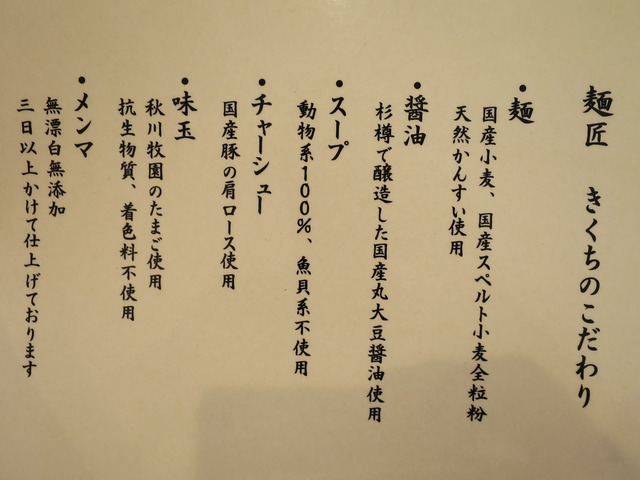 麺匠 きくちのこだわり
・麺
国産小麦、国産スペルト小麦全粒粉
天然かんすい使用
・醤油
杉樽で醸造した国産丸大豆醤油使用
・スープ
動物系100%、魚貝系不使用
・チャーシュー
国産豚の肩ロース使用
・味玉
秋川牧園のたまご使用
抗生物質、着色料不使用
・メンマ
無漂白無添加
三日以上かけて仕上げております